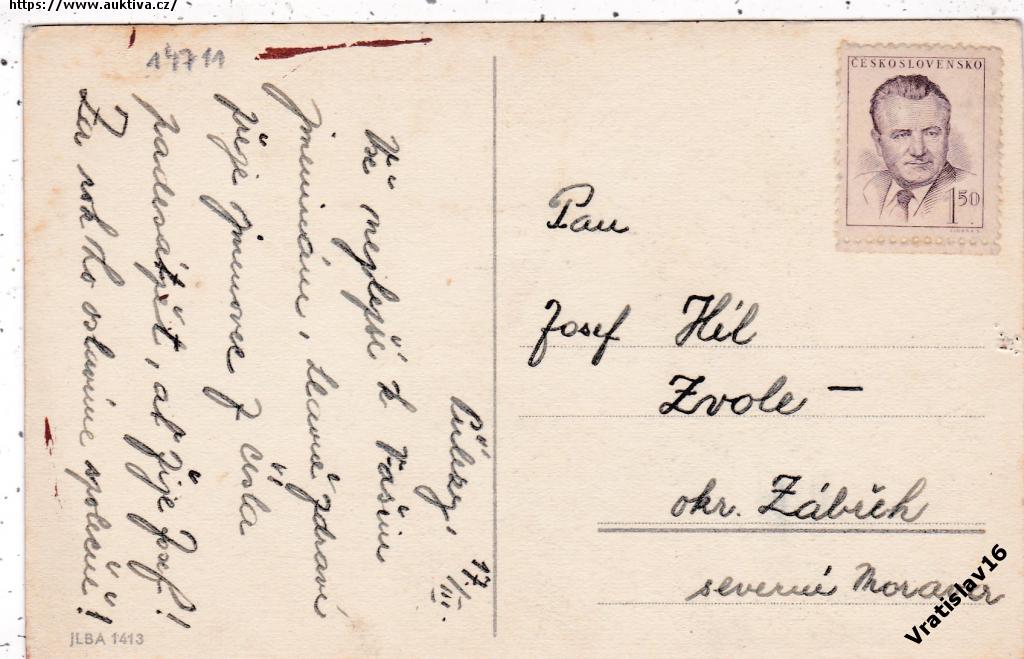 https://www.auktiva.cz/
14711
Vše nejlepší k Vašim
jmeninám, hlavně zdraví
přeje jmenovec z čísla
padesátpět, ať žije Josef!
Za rok to oslavíme společně!
17/III.
JLBA 1413
ČESKOSLOVENSKO
1.50
Pan
Josef Híl
Zvole –
okr. Zábřeh
severní Morava
Vratislav16